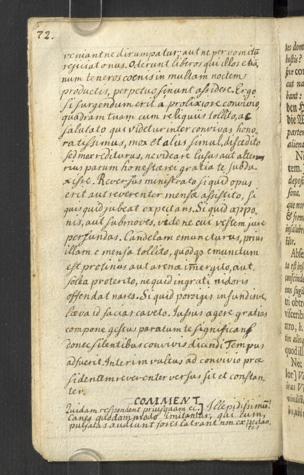 72.
veniant ne dirumpatur; aut ne per vomitũ
reijciat onus. Oderunt liberos qui illos etiã,
num teneros coenis in multam noctem
productis, perpetuo sinunt assidere. Ergo
si surgendum erit a prolixiore convivio,
quadram tuam cum reliquiis tollito, ac
salutato qui videtur inter convivas hono,
ratissimus, mox et aliis simul, discedito
sed mox redituris, ne videare lusus aut alterius
rius parum honestae rei gratia te subdu,
xisse. Reversus ministrato si quid opus
erit aut reverenter mensae assistito, si
quis quid jubeat expectans. Si quid appo,
nis, aut submoves, vide ne cui vestem jure
perfundas. Candelam emuncturus, prius
illam e mensa tollito, quodque emunctum
est protinus aut arena immergito, aut
solea proterito, ne quid ingrati nidoris
offendat nares. Si quid porrigis infundisve,
laeva id facias caveto. Jussus agere gratias
compone gestus paratum te significans
donec silentibus convivis dicendi tempus
adfuerit. Interim vultus ad convivio prae
sidentem reverenter versus sit et constan,
ter.
COMMENT.
Quidam respondent priusquam
Canes quodammodo imitantur, qui cum,
pulsatas audiunt fores latrant non expectan,
tes